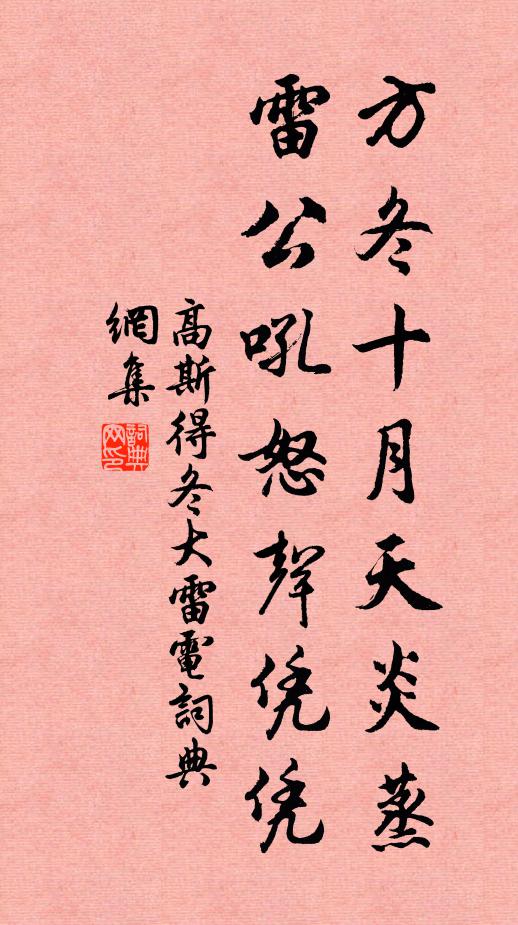 方冬十月天炎蒸
雷公吼怒聲凭凭
高斯得冬大雷電詞典
網集
詞典
网印